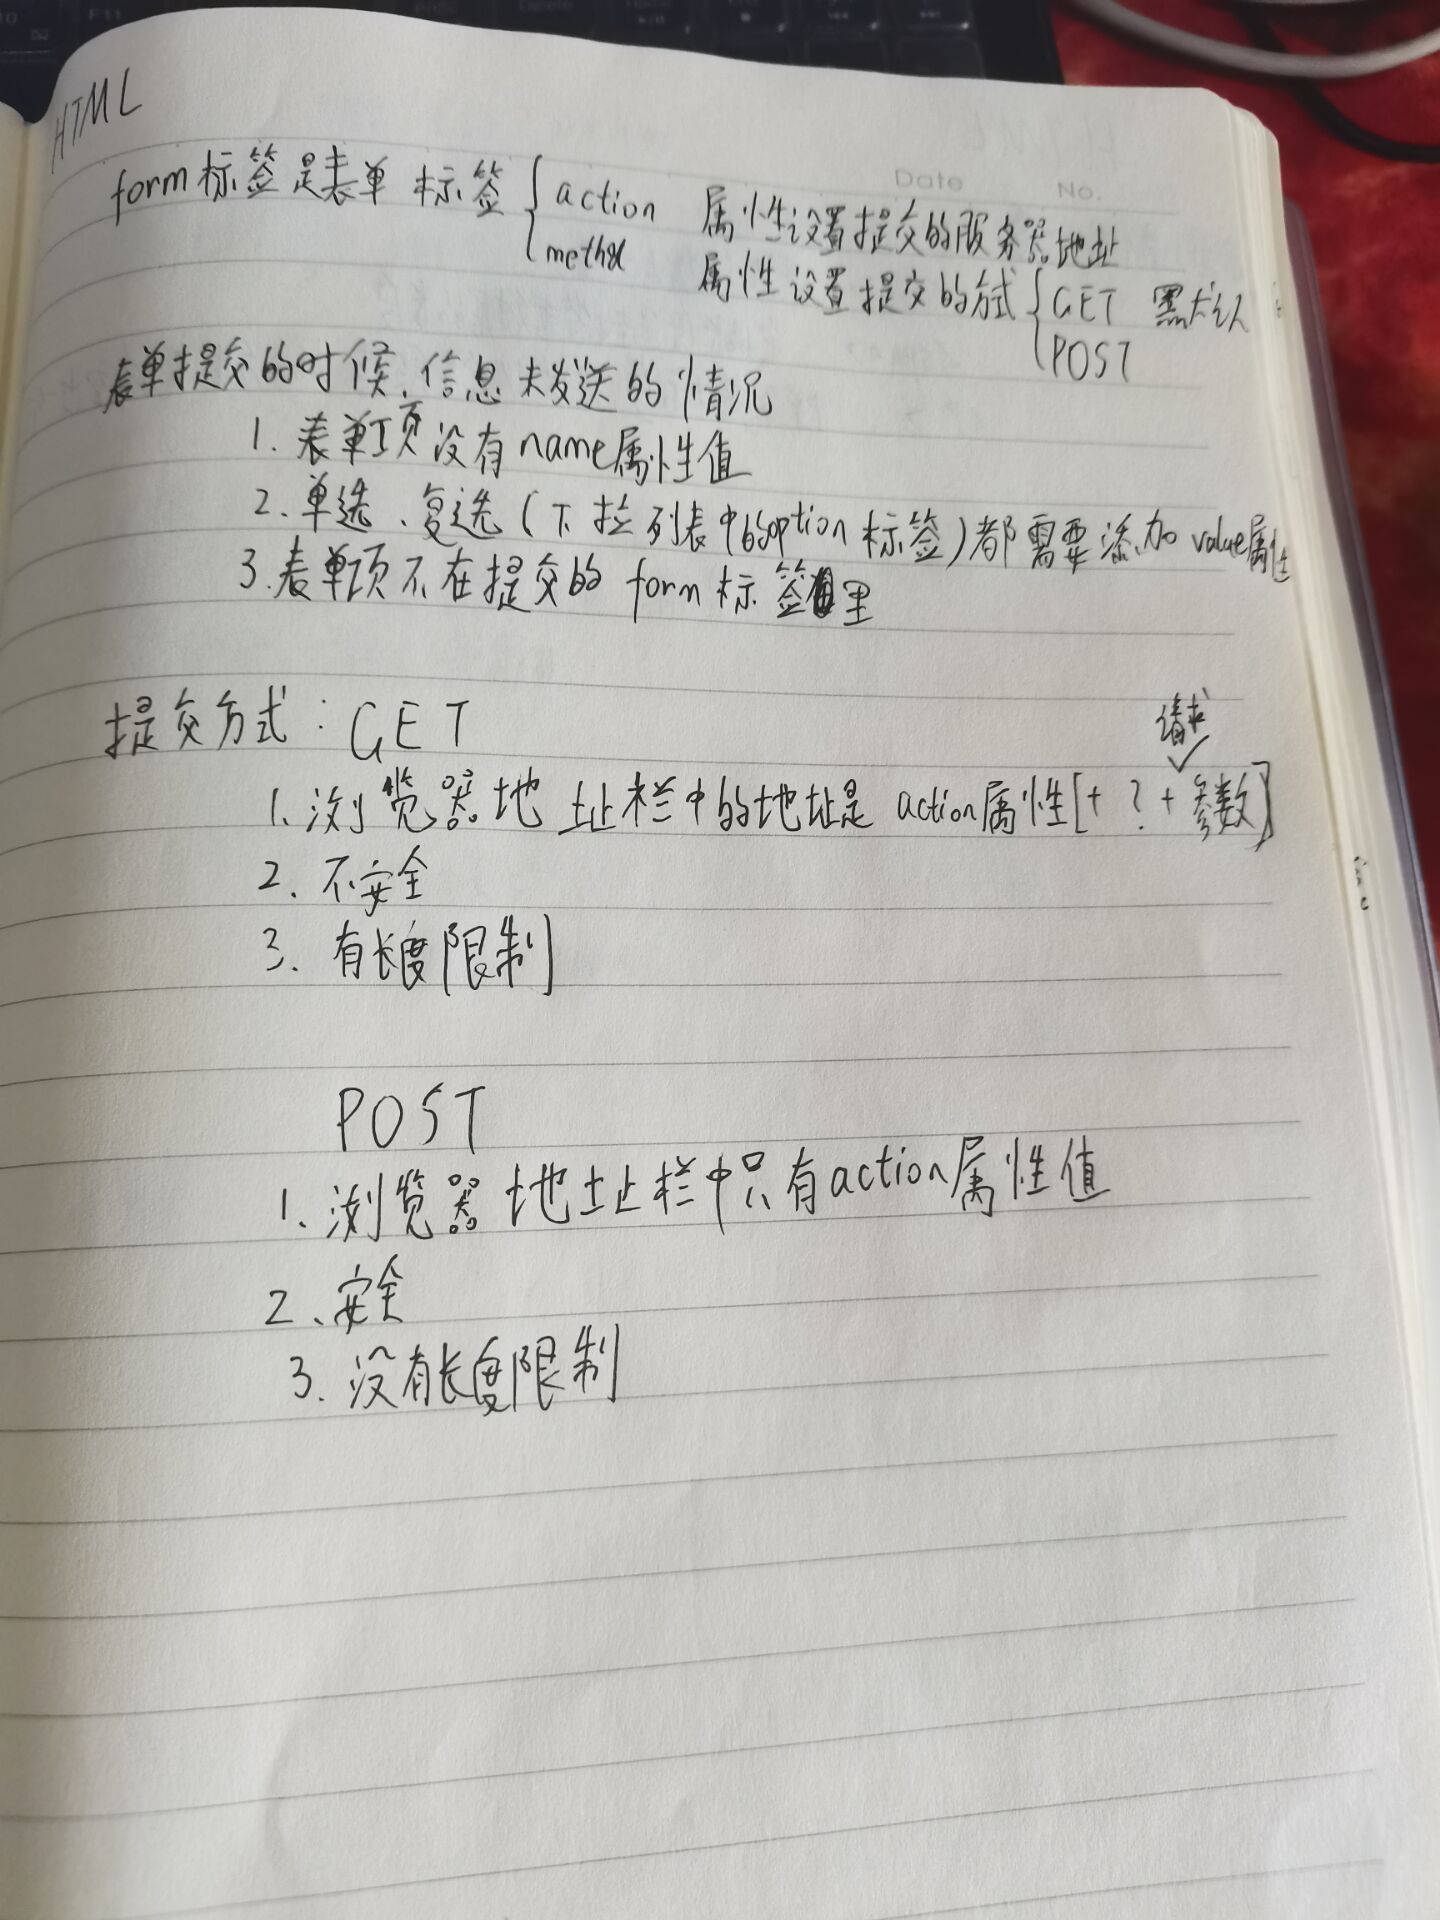 HTML
Date No.
form标签是表单 标签 { action 属性设置提交的服务器地址
method 属性设置提交的方式 { GET 默认
POST
表单提交的时候、信息未发送的情况
1. 表单项没有name属性值
2. 单选、复选(下拉列表中的option标签)都需要添加 value属性
3. 表单项不在提交的 form 标签里
提交方式: GET
请求
1. 浏览器地址栏中的地址是 action属性[+ ? + 参数]
2. 不安全
3. 有长度限制
POST
1. 浏览器地址栏中只有action属性值
2、安全
3. 没有长度限制